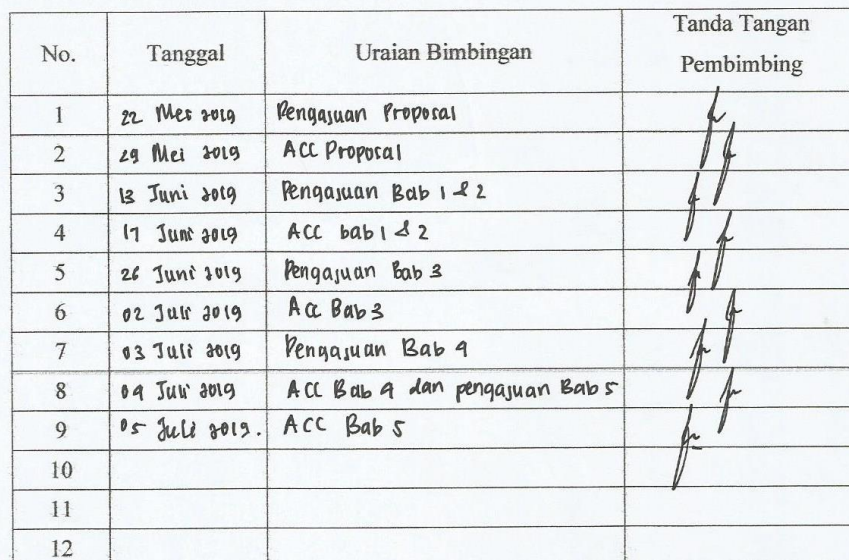 No. Tanggal Uraian Bimbingan Tanda Tangan Pembimbing
1 22 Mei 2019 Pengajuan Proposal
2 29 Mei 2019 ACC Proposal
3 13 Juni 2019 Pengajuan Bab 1 & 2
4 17 Juni 2019 ACC bab 1 & 2
5 26 Juni 2019 Pengajuan Bab 3
6 02 Juli 2019 ACC Bab 3
7 03 Juli 2019 Pengajuan Bab 4
8 04 Juli 2019 ACC Bab 4 dan pengajuan Bab 5
9 05 Juli 2019. ACC Bab 5
10
11
12